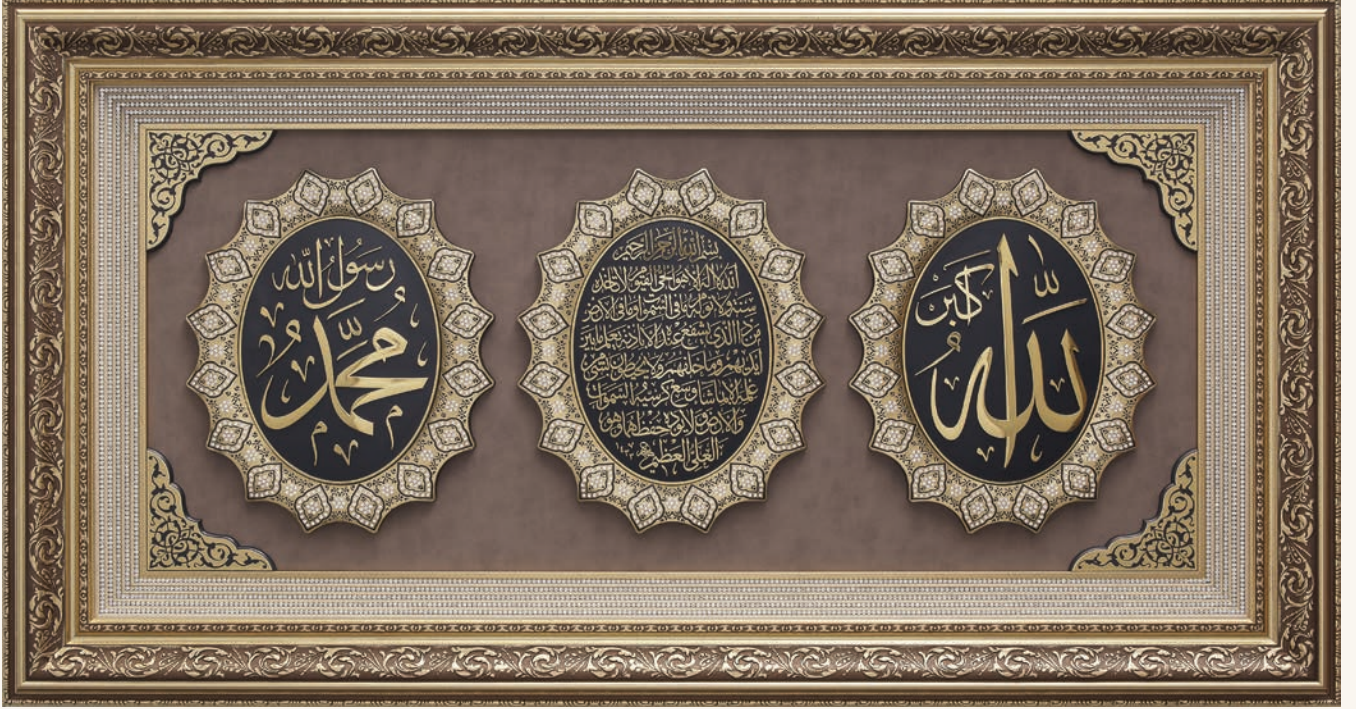 الله أكبر
بسم الله الرحمن الرحيم
الله لا اله الا هو الحي القيوم لا تاخذه
سنة ولا نوم له ما في السموات وما في الارض
من ذا الذي يشفع عنده الا باذنه يعلم ما بين
ايديهم وما خلفهم ولا يحيطون بشيء
من علمه الا بما شاء وسع كرسيه السموات
والارض ولا يؤده حفظهما وهو
العلي العظيم
رسول الله
محمد